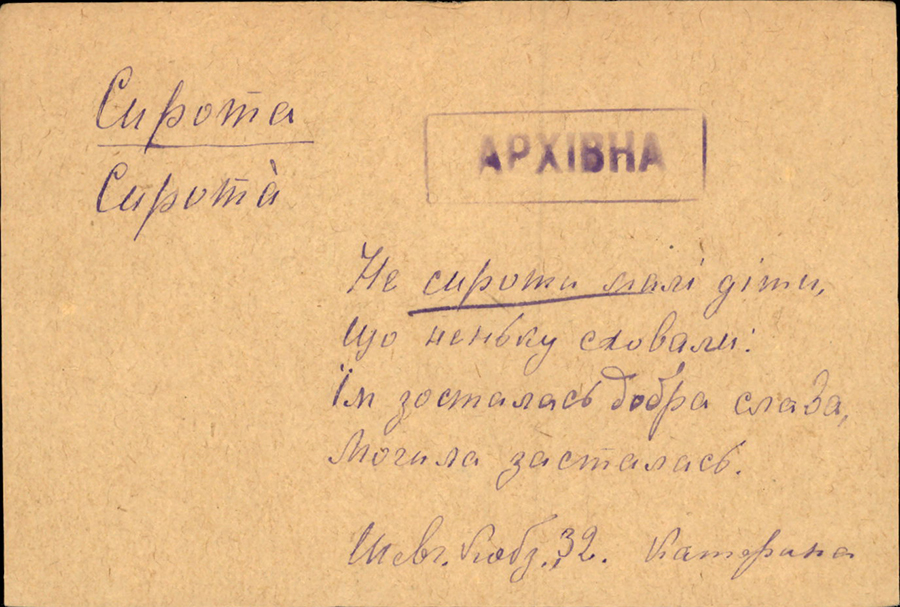 Сирота
АРХІВНА
Сирота̀
Не сироти малі діти,
Що неньку сховали:
Їм зосталась добра слава,
Могила засталась.
Шевч. Кобз. 32. Катерина